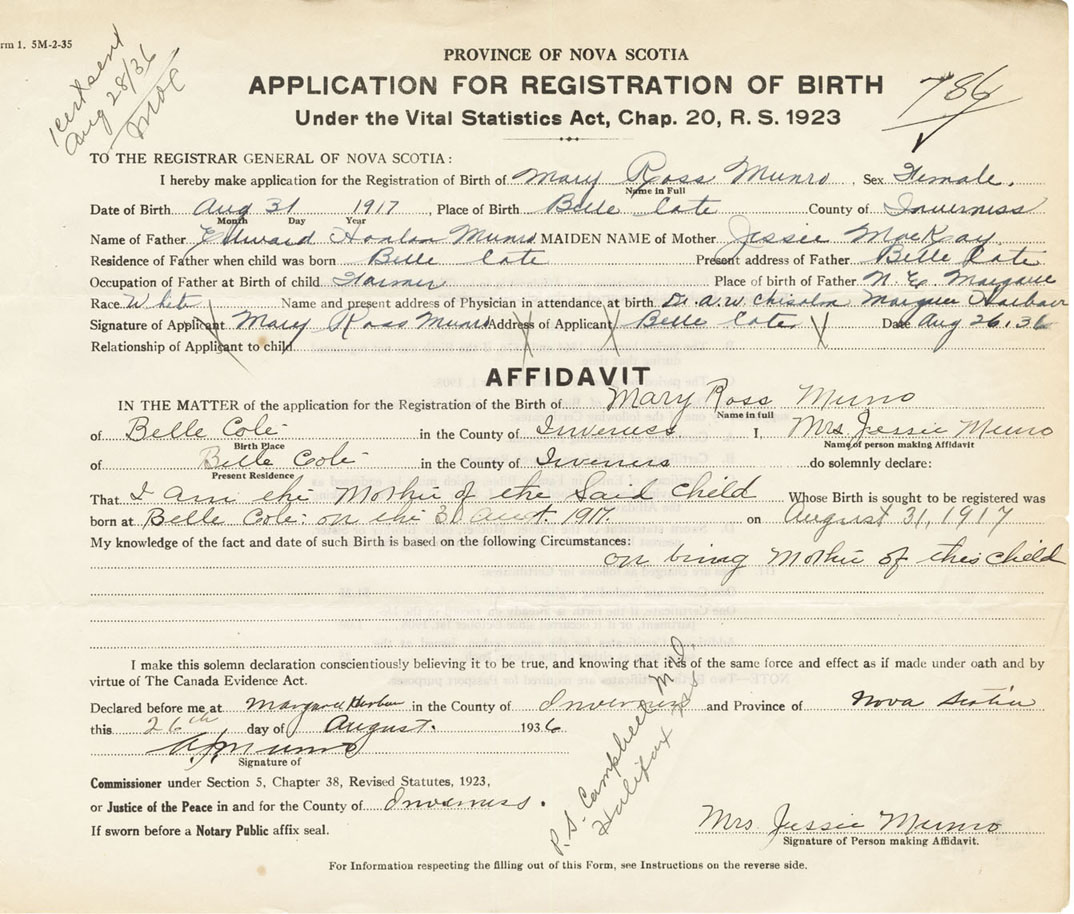 rm 1. 5M-2-35
Cert sent
Aug 28/36
PROVINCE OF NOVA SCOTIA
APPLICATION FOR REGISTRATION OF BIRTH
786
Under the Vital Statistics Act, Chap. 20, R. S. 1923
TO THE REGISTRAR GENERAL OF NOVA SCOTIA:
I hereby make application for the Registration of Birth of Mary Ross Munro, Sex Female.
Name in Full
Date of Birth Aug 31 1917, Place of Birth Belle Cote County of Inverness
Month Day Year
Name of Father Edward Munro MAIDEN NAME of Mother Jessie MacKay
Residence of Father when child was born Belle Cote Present address of Father Belle Cote
Occupation of Father at Birth of child Farmer Place of birth of Father N. E. Margaree
Race White Name and present address of Physician in attendance at birth Dr. A. W. Chisolm Margaree Harbour
Signature of Applicant Mary Ross Munro Address of Applicant Belle Cote Date Aug 26, 36
Relationship of Applicant to child
AFFIDAVIT
IN THE MATTER of the application for the Registration of the Birth of Mary Ross Munro
Name in full
of Belle Cote in the County of Inverness I, Mrs. Jessie Munro
Birth Place Name of person making Affidavit
of Belle Cote in the County of Inverness do solemnly declare:
Present Residence
That I am the Mother of the Said Child Whose Birth is sought to be registered was
born at Belle Cote: on the 31 1917. on August 31, 1917
My knowledge of the fact and date of such Birth is based on the following Circumstances:
on being Mother of this child
I make this solemn declaration conscientiously believing it to be true, and knowing that it is of the same force and effect as if made under oath and by
virtue of The Canada Evidence Act.
Declared before me at Margaree Harbour in the County of Inverness and Province of Nova Scotia
this 26th day of August. 1936
A J Munro
Signature of
Commissioner under Section 5, Chapter 38, Revised Statutes, 1923,
or Justice of the Peace in and for the County of Inverness.
If sworn before a Notary Public affix seal.
P. S. Campbell M. D.
Halifax NS
Mrs. Jessie Munro
Signature of Person making Affidavit.
For Information respecting the filling out of this Form, see Instructions on the reverse side.